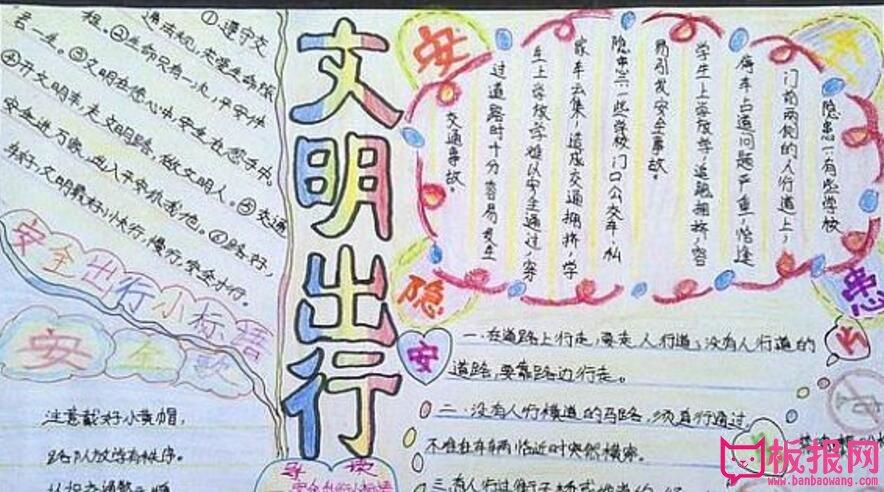 ①遵守交
通法规，关爱生命旅
程。②生命只有一次，平安伴
君一生。③文明在您心中，安全在您手中。
④开文明车，走文明路，做文明人。⑤交通
安全进万家，出入平安
文明最好，小快行，慢行，安全才行。
安全出行小标语
安全歌
注意戴好小黄帽，
路队放学有秩序。
文明出行
导读
安全隐患
隐患一：有些学校
门前两侧的人行道上，
停车占道问题严重，恰逢
学生上学放学，道路拥挤，容
易引发安全事故。
隐患二：一些学校门口公交车，私
家车云集，造成交通拥挤，学
生上学放学难以安全通过，穿
过道路时十分容易发生
交通事故。
安
一.在道路上行走，要走人行道；没有人行道的
道路，要靠路边行走。
二.没有人行横道的马路，须直行通过，
不准在车辆临近时突然横穿。
三.有人行过街
板报网
www.banbaowang.com